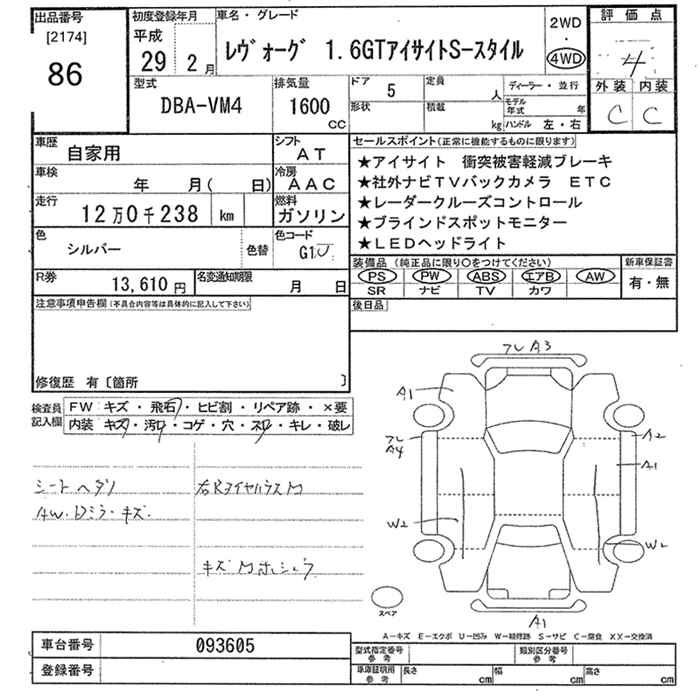 出品番号
[2174]
86
初度登録年月
平成
29 2月
車名・グレード
レヴォーグ 1.6GTアイサイトS-スタイル
2WD
・
4WD
評価点
4
外装 内装
C C
型式
DBA-VM4
排気量
1600
CC
ドア 5
形状
定員
人
積載
kg
ディーラー・並行
モデル年式 年
ハンドル 左・右
車歴
自家用
シフト
AT
車検
年 月( 日)
冷房
AAC
走行
12万0千238 km
燃料
ガソリン
色
シルバー
色替
色コード
G1J
R券
13,610円
名変通知期限
月 日
セールスポイント(正常に機能するものに限ります)
★アイサイト 衝突被害軽減ブレーキ
★社外ナビTVバックカメラ ETC
★レーダークルーズコントロール
★ブラインドスポットモニター
★LEDヘッドライト
装備品(純正品に限り○をつけてください)
PS PW ABS エアB AW
SR ナビ TV カワ
新車保証書
有・無
後日品
注意事項申告欄(不具合内容等は具体的に記入して下さい)
修復歴 有〔箇所 〕
検査員記入欄
FW キズ・飛石・ヒビ割・リペア跡・×要
内装 キズ・汚レ・コゲ・穴・スレ・キレ・破レ
シートヘタリ
AW・Dミラ・キズ
キズ
フレA3
A1
フレ
A4
A2
A1
W2
W2
A1
スペア
A-キズ E-エクボ U-凹み W-補修跡 S-サビ C-腐食 XX-交換済
車台番号 093605
登録番号
型式指定番号
参考
類別区分番号
参考
車庫証明用
参考
長さ cm 幅 cm 高さ cm